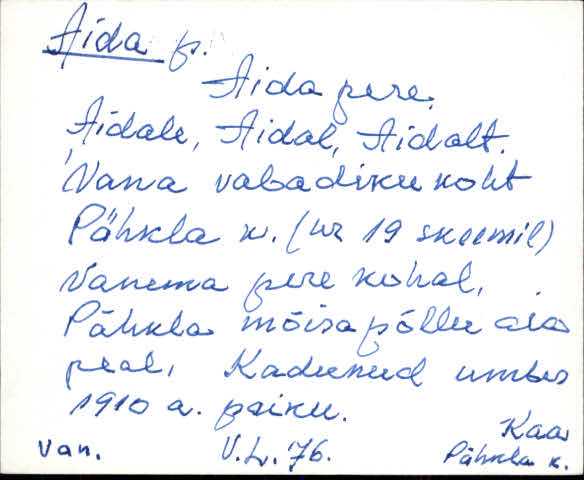 Aida p.
Aida pere.
Aidale, Aidal, Aidalt.
Vana vabadiku koht
Pähkla k. (nr 19 skeemil)
Vanema pere kohal,
Pähkla mõisapõllu ala
peal, Kadunud umbes
1910 a. paiku.
Kaa
Van. V.L.'76. Pähkla k.